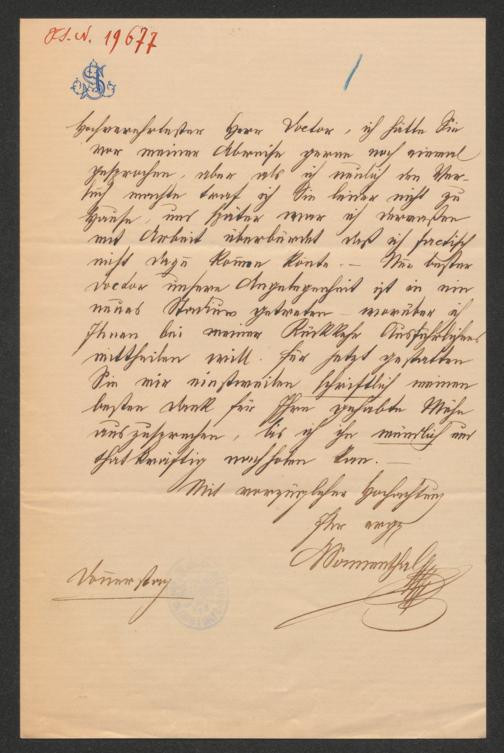 J.S.N. 19677
Hochverehrtester Herr Doctor, ich hätte Sie
vor meiner Abreise gerne noch einmal
gesprochen, aber als ich neulich den Ver-
such machte traf ich Sie leider nicht zu
Hause, und später war ich dermaßen
mit Arbeit überbürdet daß ich factisch
nicht dazu kom̄en konte. – Nun bester
Doctor unsere Angelegenheit ist in ein
neues Stadium getreten – worüber ich
Ihnen bei meiner Rückkehr Ausführliches
mittheilen will. Für jetzt gestatten
Sie mir einstweilen schriftlich meinen
besten Dank für Ihre gehabte Mühe
auszusprechen, bis ich ihn mündlich und
thatkräftig nachholen kan. –
Mit vorzüglicher Hochachtung
Ihr ergs
ASonnenthal
Don̄erstag